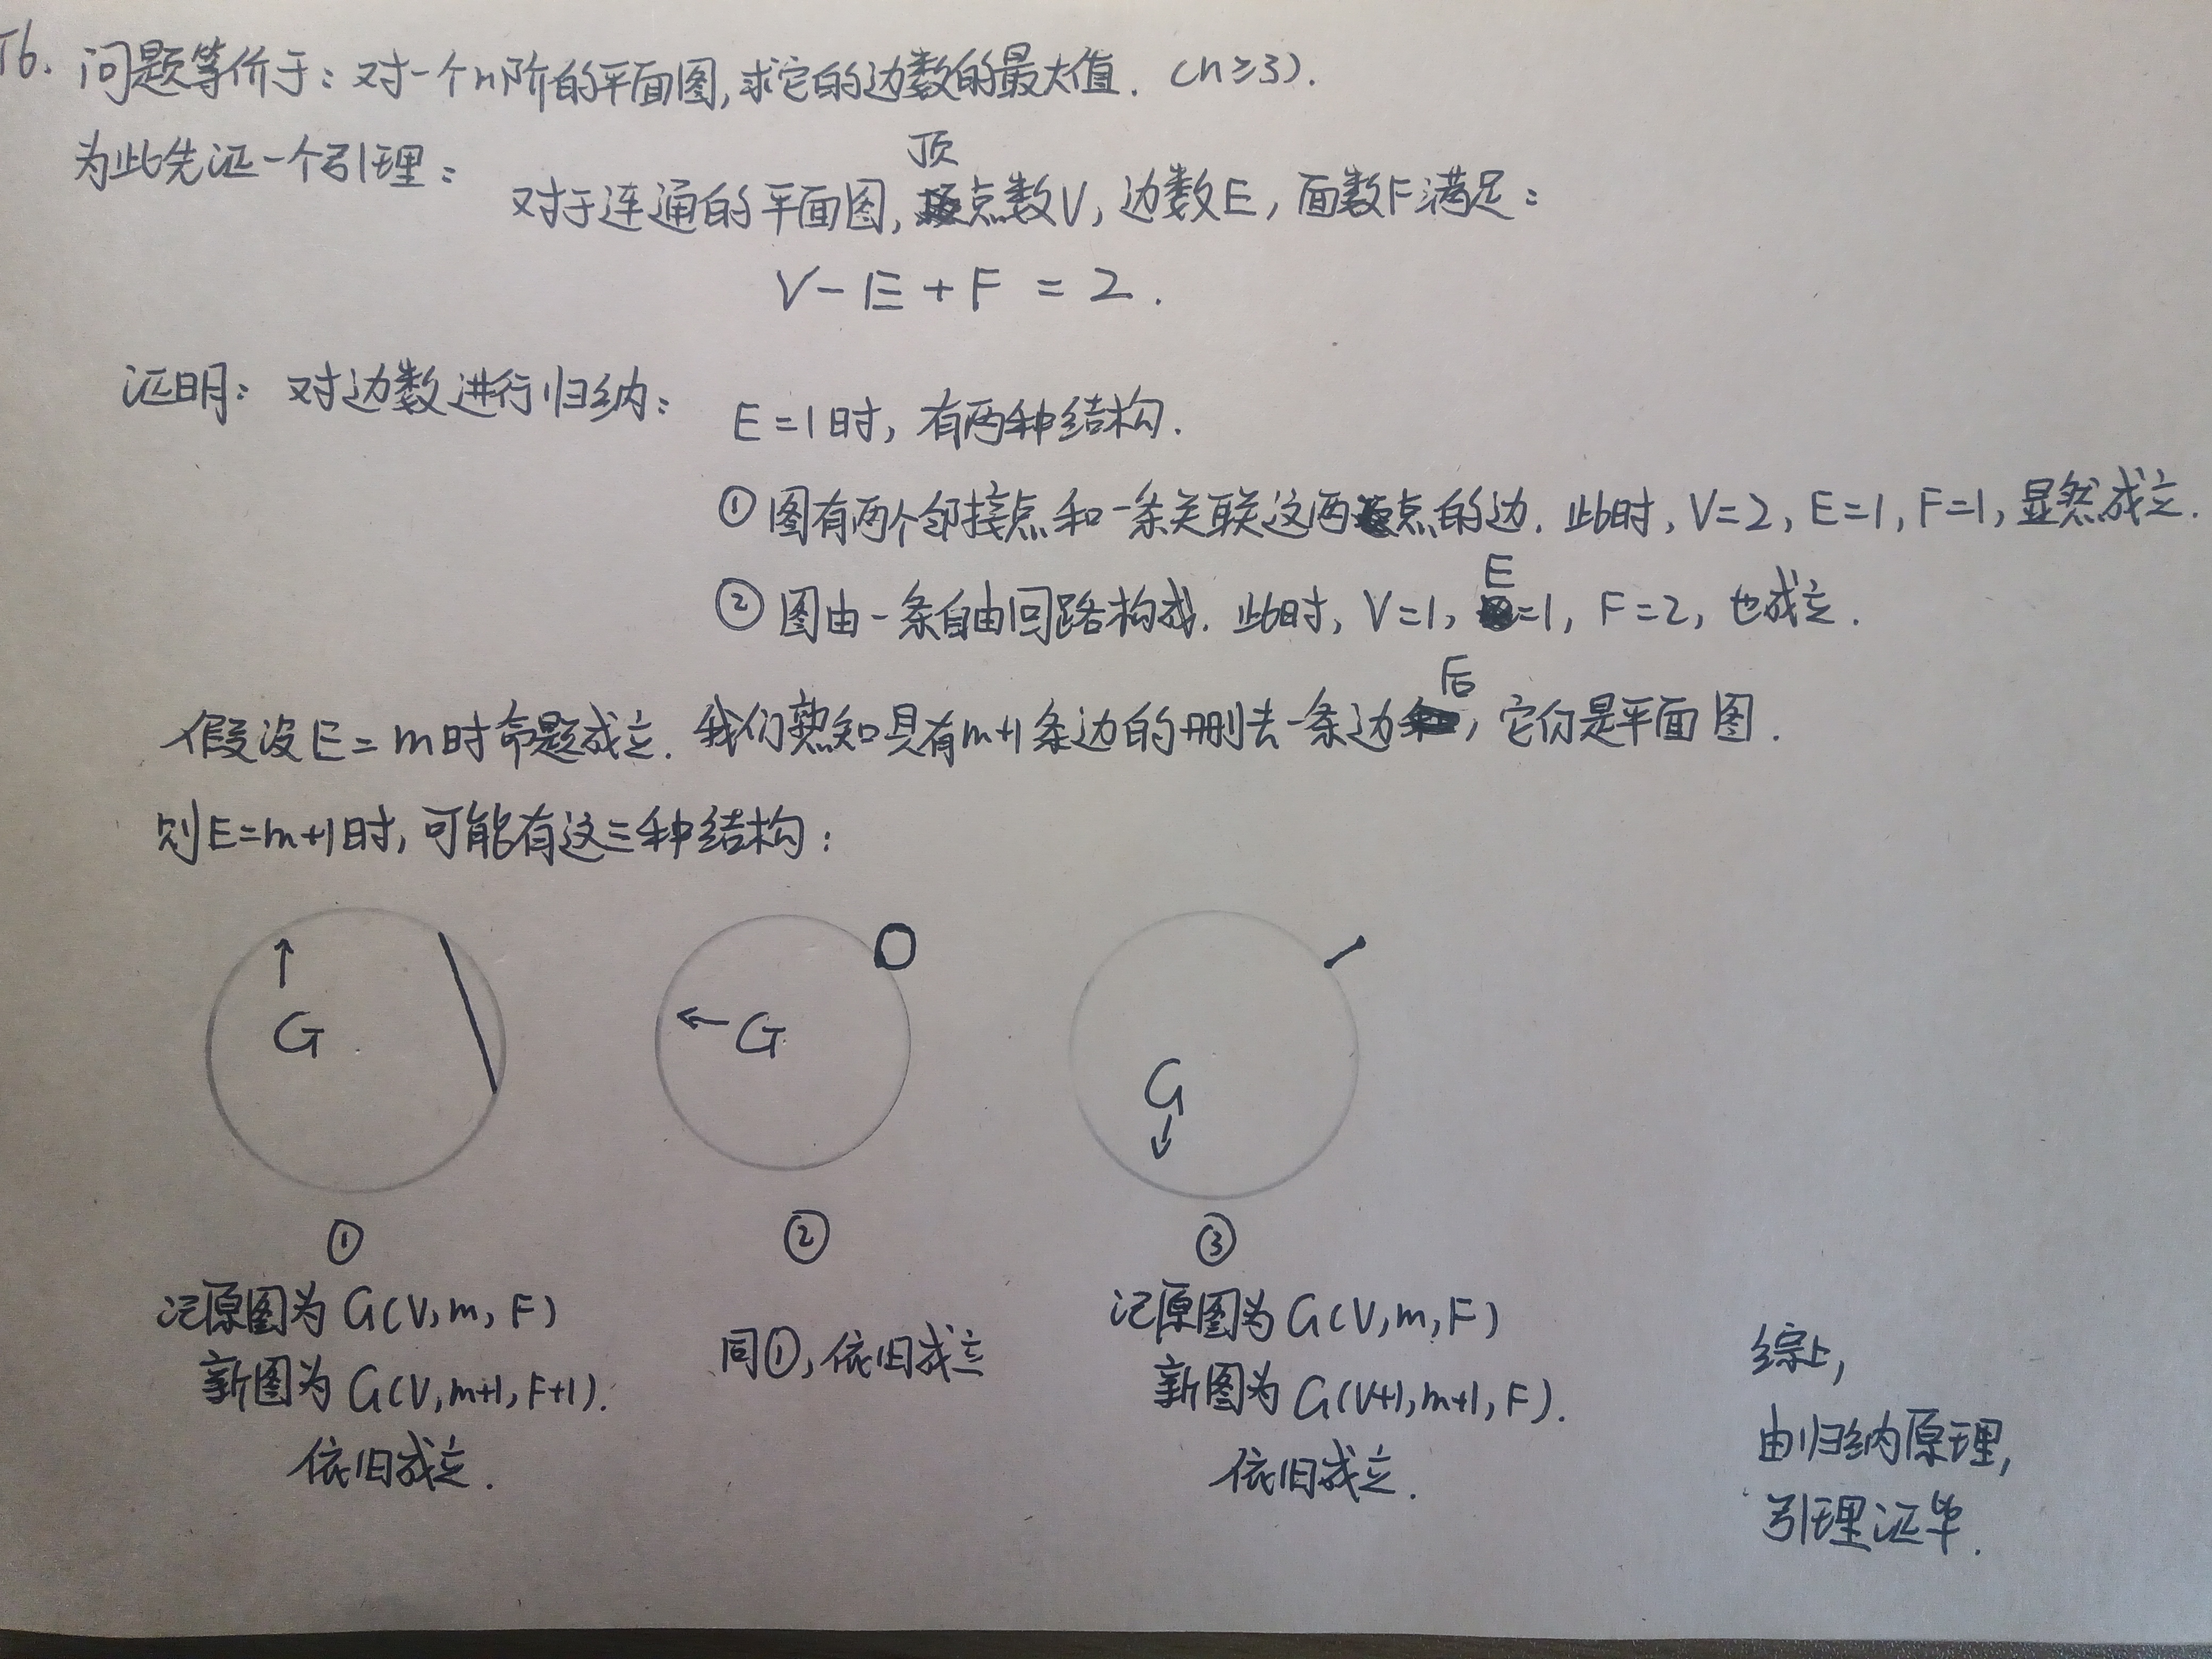 T6. 问题等价于：对一个n阶的平面图,求它的边数的最大值. (n≥3).
为此先证一个引理：
对于连通的平面图,顶点数V,边数E,面数F满足：
V-E+F=2.
证明：对边数进行归纳：
E=1时,有两种结构.
①图有两个邻接点和一条关联这两点的边. 此时, V=2, E=1, F=1, 显然成立.
②图由一条自由回路构成. 此时, V=1, E=1, F=2, 也成立.
假设E=m时命题成立. 我们熟知具有m+1条边的删去一条边后,它仍是平面图.
则E=m+1时,可能有这三种结构：
G
G
G
①
②
③
记原图为G(V,m,F)
新图为G(V,m+1,F+1).
依旧成立.
同①,依旧成立
记原图为G(V,m,F)
新图为G(V+1,m+1,F).
依旧成立.
综上,
由归纳原理,
引理证毕.